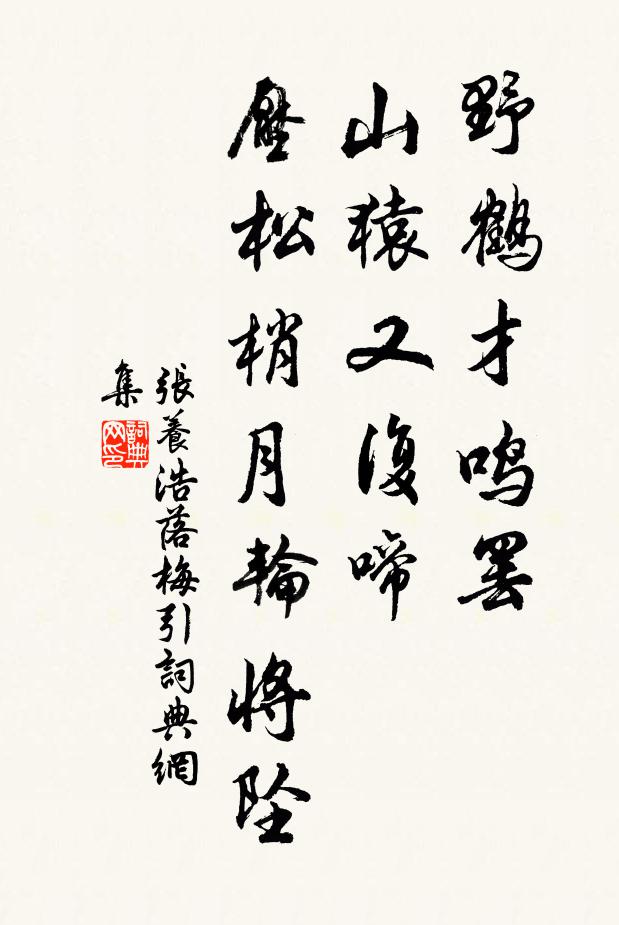 野鶴才鳴罷
山猿又復啼
壓松梢月輪將墜
張養浩落梅引詞典網
集
詞典
网印